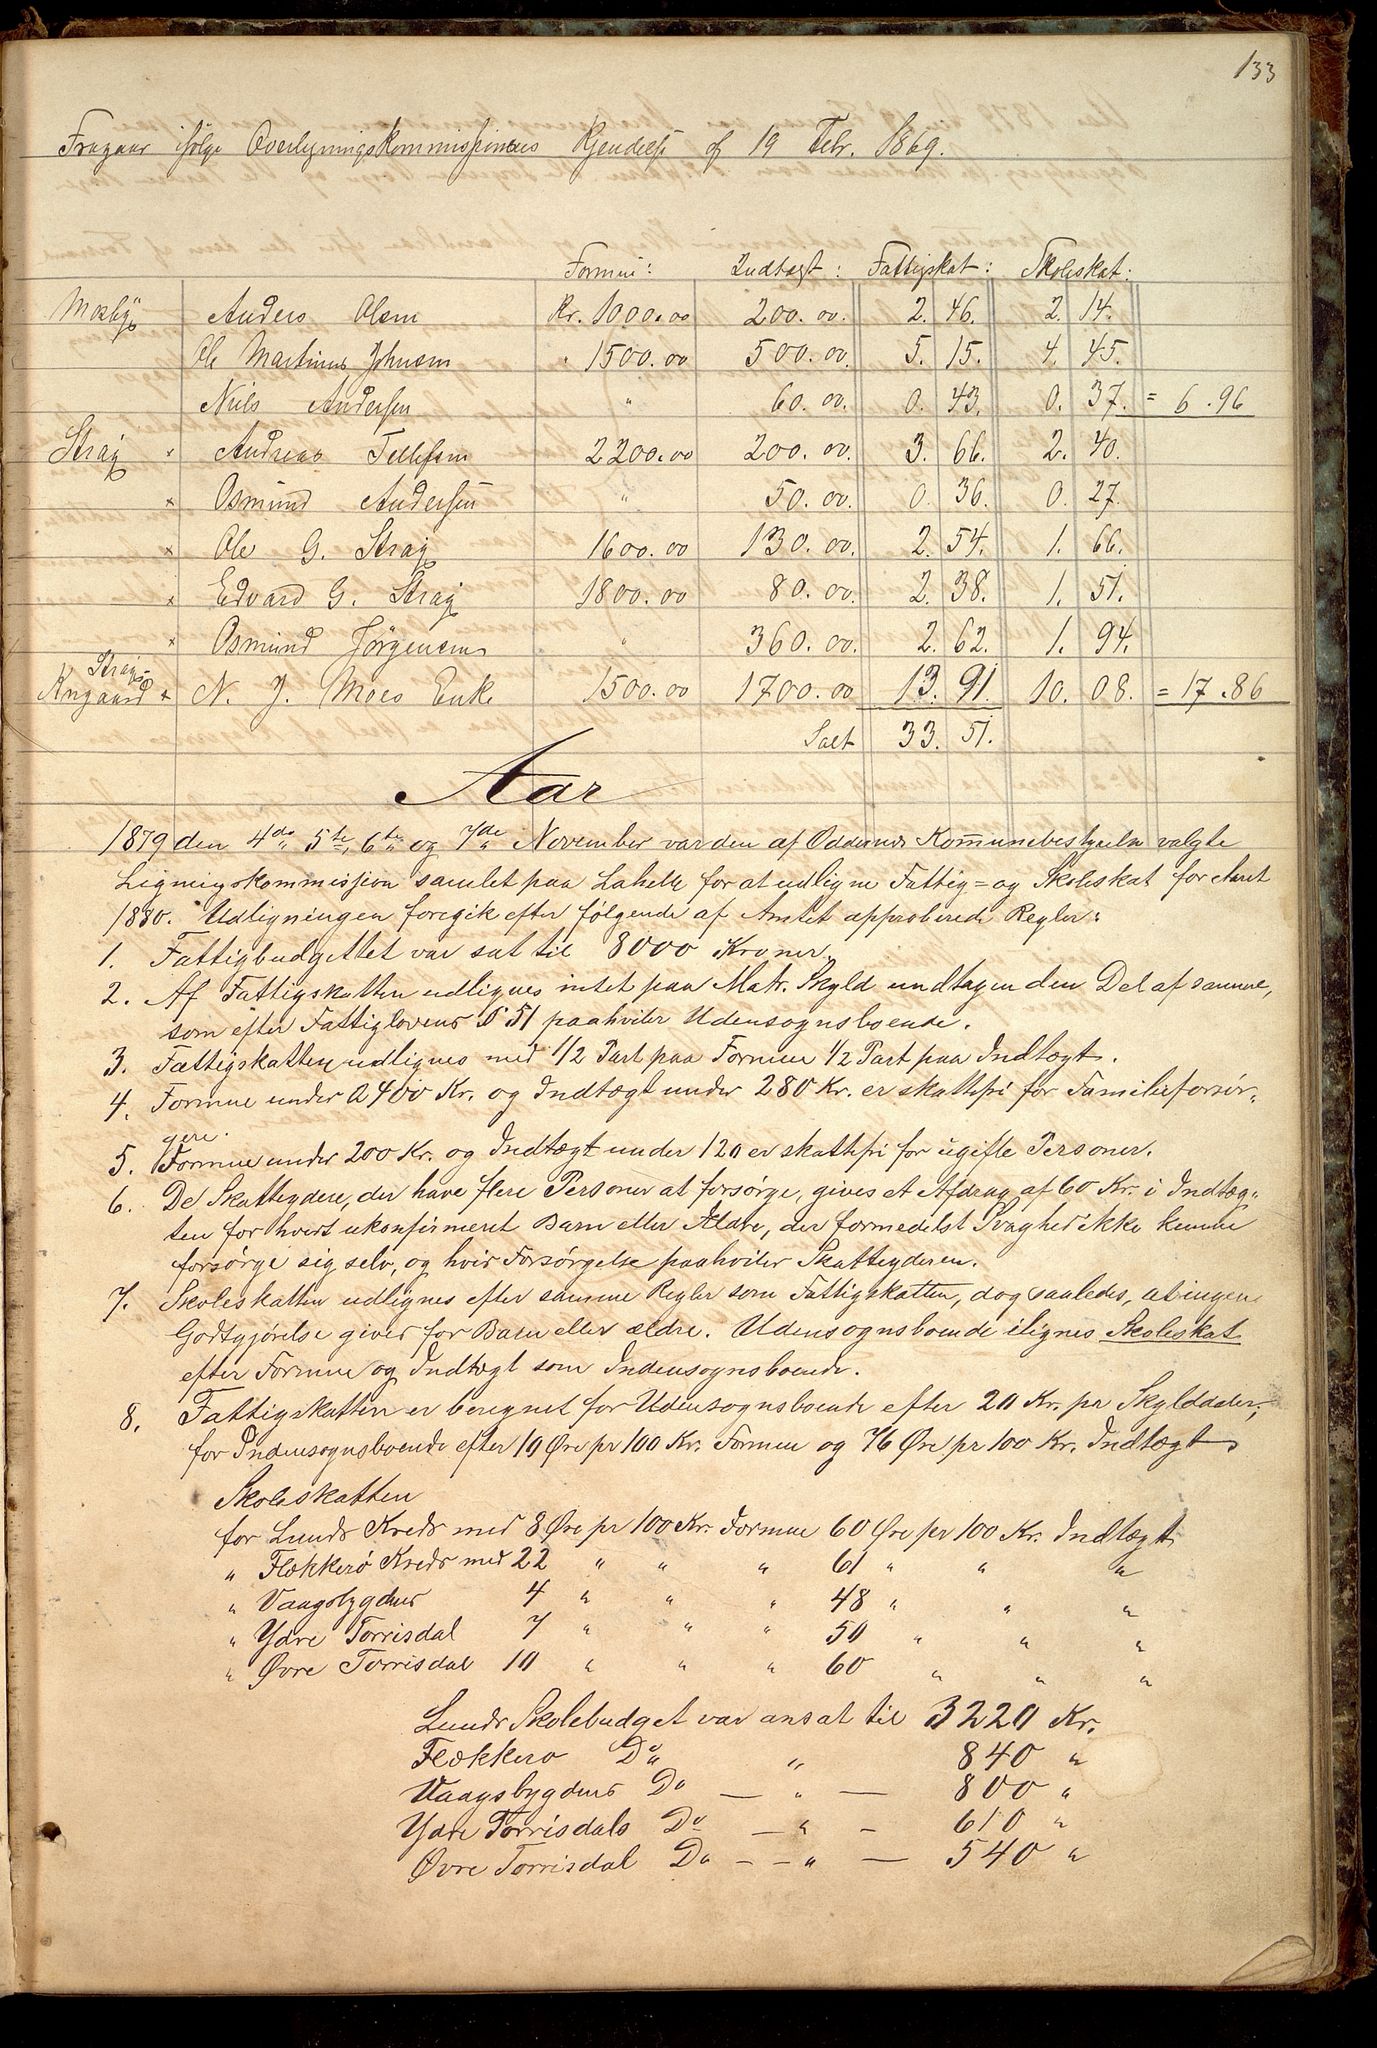 133
Fragaar ifølge Overligningskommissionens Kjendelse af 19 Febr. 1869.
Formue: Indtægt: Fattigskat: Skoleskat:
Mosby Anders Olsen Kr. 1000.00 200.00. 2. 46. 2. 14.
Ole Martinus Johnsen " 1500.00 500.00. 5. 15. 4. 45.
Niels Andersen " 60.00. 0. 43. 0. 37. = 6.96
Stray × Andreas Tellefsen 2200.00 200.00. 3. 66. 2. 40.
× Osmund Andersen " 50.00. 0. 36. 0. 27.
× Ole G. Stray 1600.00 130.00. 2. 54. 1. 66.
× Edvard G. Stray 1800.00 80.00. 2. 38. 1. 51.
× Osmund Jørgensen " 360.00. 2. 62. 1. 94.
Strays-
× N. J. Moes Enke 1500.00 1700.00 13. 91. 10. 08. = 17.86
Salt 33. 51.
Aar
1879 den 4de 5te, 6te og 7de November var den af Oddernes Kommunebestyrelse valgte
Ligningskommission samlet paa Lahelle for at udligne Fattig= og Skoleskat for Aaret
1880. Udligningen foregik efter følgende af Amtet approberede Regler:
1. Fattigbudgettet var sat til 8000 Kroner.
2. Af Fattigskatten udlignes intet paa Matr. Skyld undtagen den Del af samme,
som efter Fattiglovens § 51 paahviler Udensognsboende.
3. Fattigskatten udlignes med 1/2 Part paa Formue 1/2 Part paa Indtægt.
4. Formue under 400 Kr. og Indtægt under 280 Kr. er skattefri for Familieforsør-
gere.
5. Formue under 200 Kr. og Indtægt under 120 er skattefri for ugifte Personer.
6. De Skatteydere, der have flere Personer at forsørge, gives et Afdrag af 60 Kr. i Indtæg-
ten for hvert ukonfirmeret Barn eller Ældre, der formedelst Svaghed ikke kunne
forsørge sig selv, og hvis Forsørgelse paahviler Skatteyderen.
7. Skoleskatten udlignes efter samme Regler som Fattigskatten, dog saaledes, at ingen
Godtgjørelse gives for Barn eller ældre. Udensognsboende ilignes Skoleskat
efter Formue og Indtægt som Indensognsboende.
8. Fattigskatten er beregnet for Udensognsboende efter 20 Kr. pr Skylddaler,
for Indensognsboende efter 10 Øre pr 100 Kr. Formue og 76 Øre pr 100 Kr. Indtægt
Skoleskatten
for Lunds Kreds med 8 Øre pr 100 Kr. Formue 60 Øre pr 100 Kr. Indtægt
" Flekkerø Kreds med 22 " " " 61 " " "
" Vaagsbygdens 4 " " " 48 " " "
" Ydre Torrisdal 7 " " " 50 " " "
" Øvre Torrisdal 10 " " " 60 " " "
Lunds Skolebudget var ansat til 3220 Kr.
Flekkerø Do " 840 "
Vaagsbygdens Do — " — 800 "
Ydre Torrisdals Do — " — 610 "
Øvre Torrisdal Do — — " — 540 "